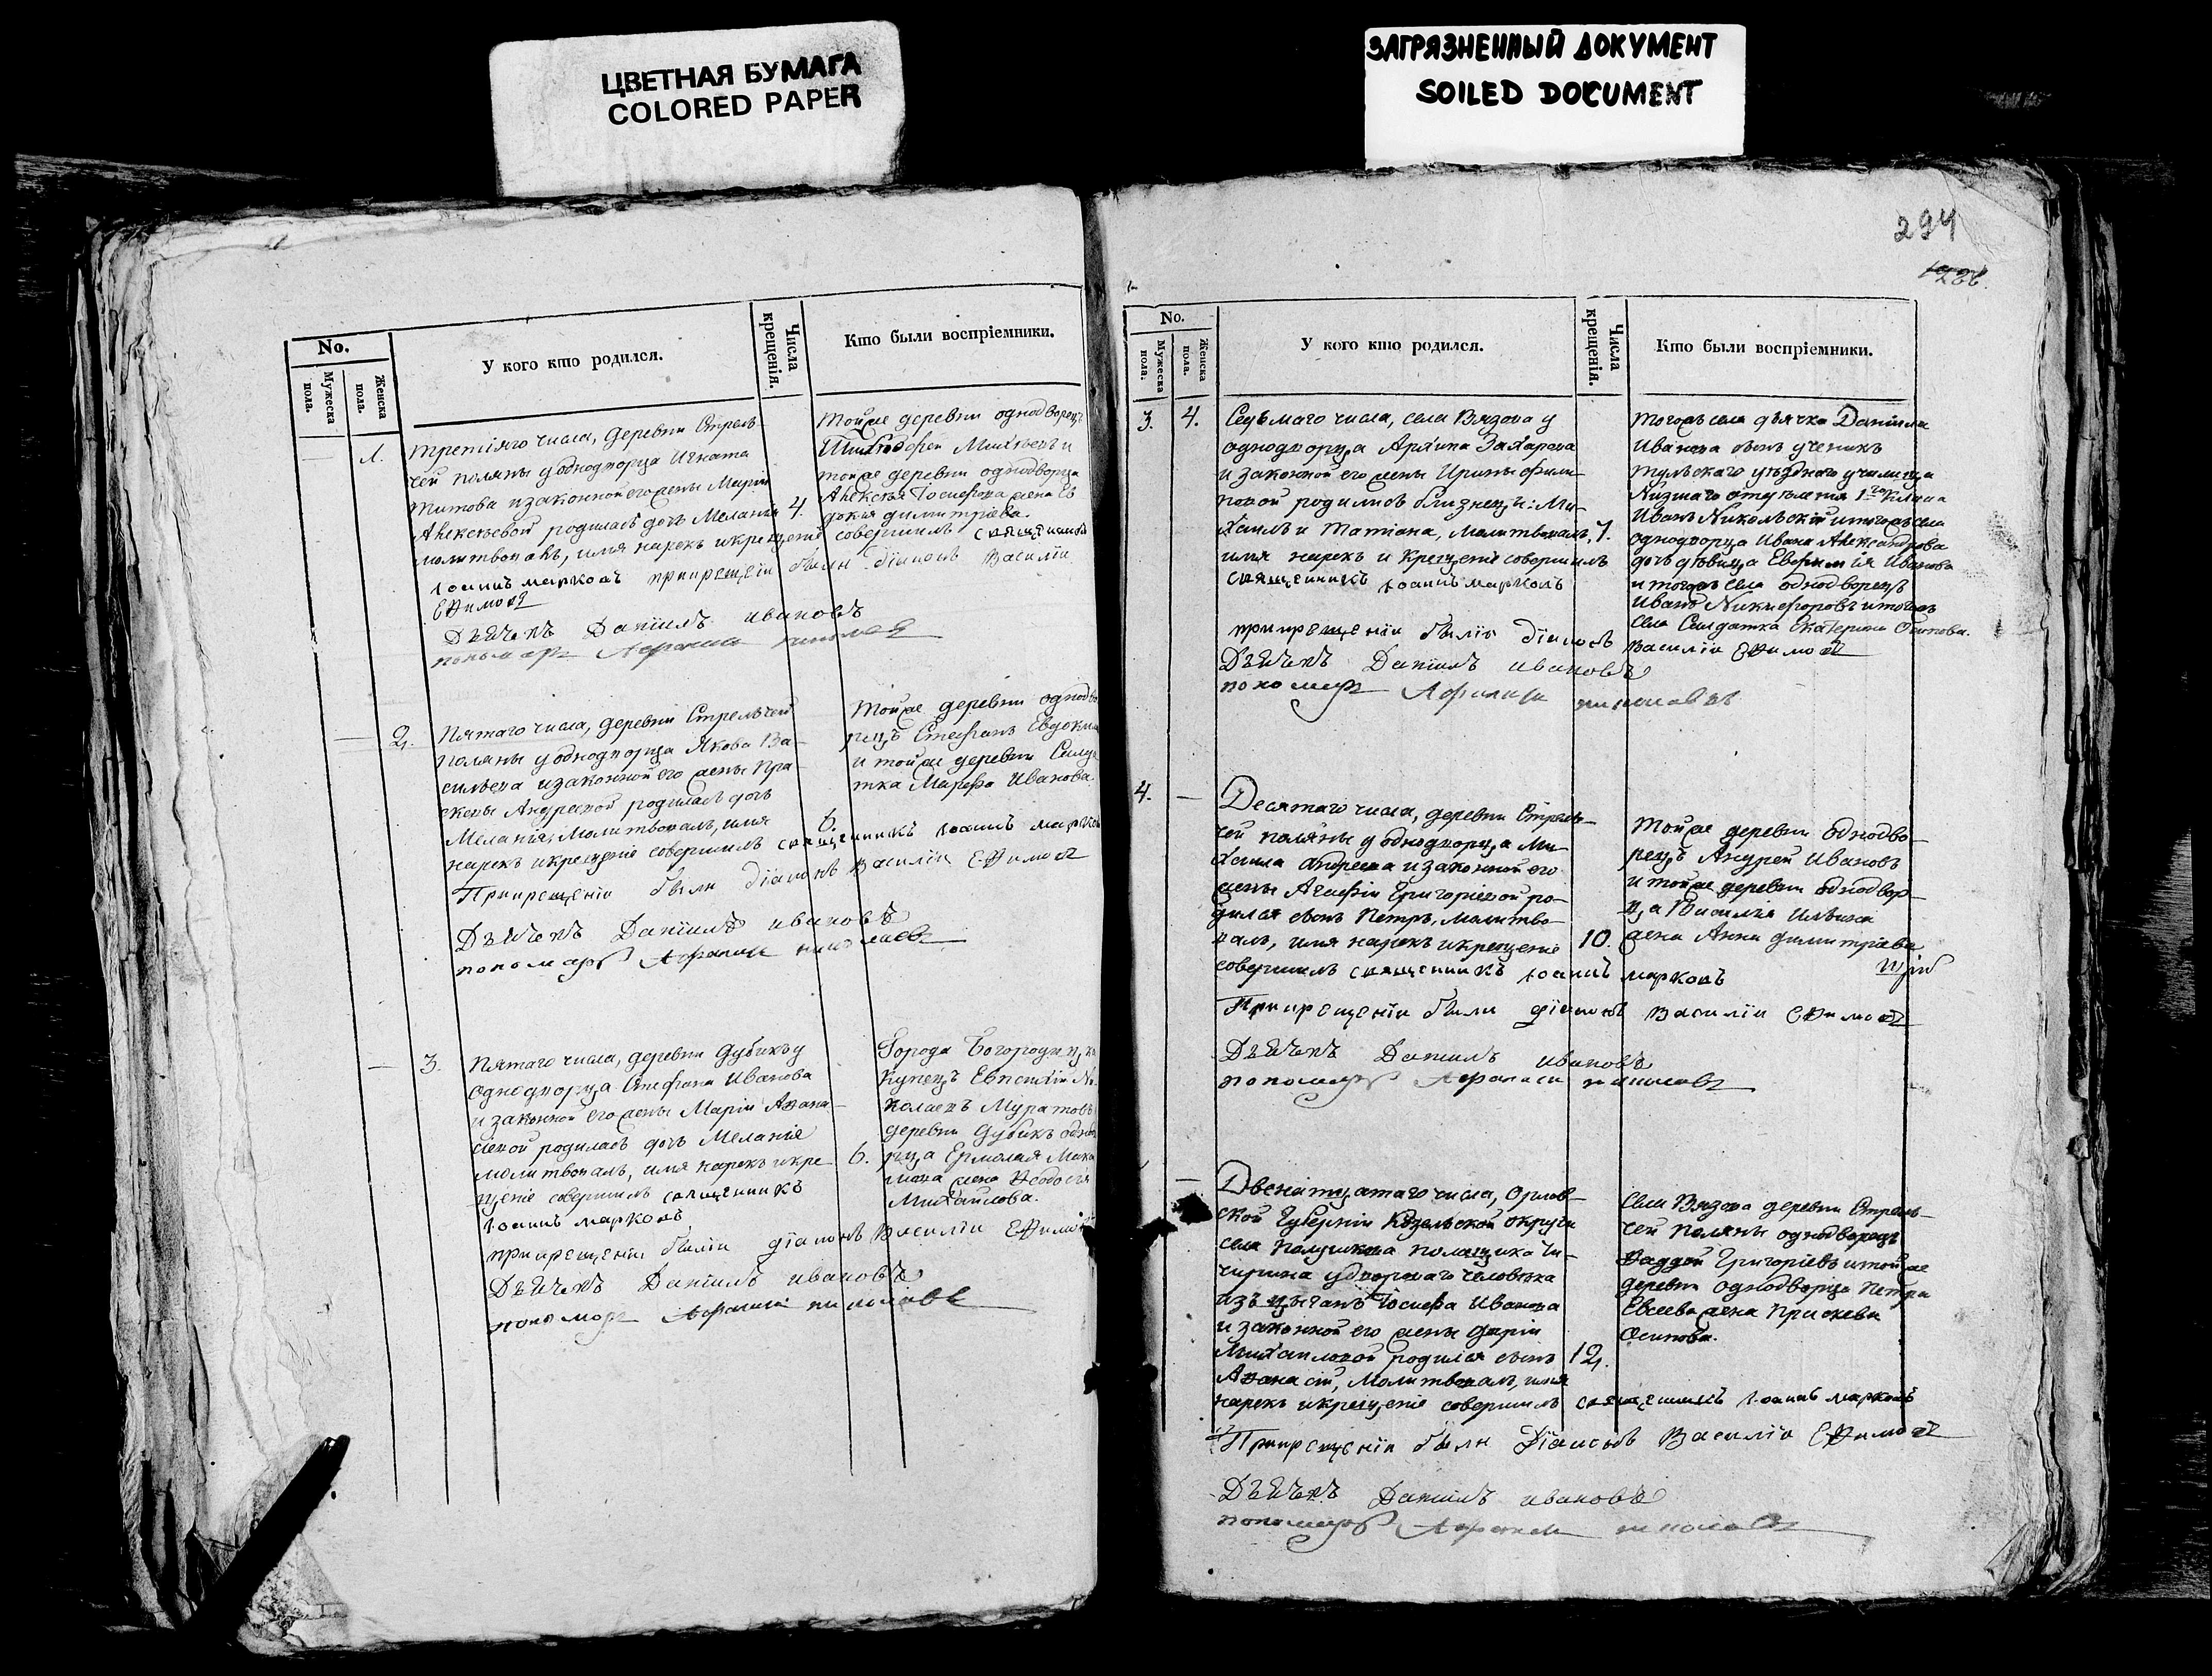 ЦВЕТНАЯ БУМАГА
COLORED PAPER
ЗАГРЯЗНЕННЫЙ ДОКУМЕНТ
SOILED DOCUMENT
No.
Мужеска пола.
Женска пола.
У кого кто родился.
Числа крещенія.
Кто были воспріемники.
1.
третіяго числа, деревни Стрель
чей поляны у однодворца Игната
Титова и законной его жены Маріи
Алексѣевой родилась дочь Меланія
молитвовалъ, имя нарекъ и крещеніе совершилъ священникъ
Іоаннъ Марковъ при крещеніи были діаконъ Василіи
Ефимовъ
Дьячекъ Даніилъ Ивановъ
пономарь
4.
тойже деревни однодворецъ
тойже деревни однодворца
Алексѣя Іосифова жена Ев
докія Димитріева.
2.
Пятаго числа, деревни Стрельчей
поляны у однодворца Якова Ва-
сильева и законной его жены Пра-
скевы Андреевой родилась дочь
Меланія, Молитвовалъ, имя
нарекъ и крещеніе совершилъ священникъ Іоаннъ Марковъ
При крещеніи были діаконъ Василіи Ефимовъ
Дьячекъ Даніилъ Ивановъ
пономарь
6.
тойже деревни однодво
рецъ Стефанъ Евдоким
и тойже деревни Салда
тка Марфа Иванова
3.
Пятаго числа, деревни Дубикъ у
однодворца Стефана Иванова
и законной его жены Маріи Афана-
сіевой родилась дочь Меланія
молитвовалъ, имя нарекъ и кре
щеніе совершилъ священникъ
Іоаннъ Марковъ
при крещеніи были діаконъ Василіи Ефимовъ
Дьячекъ Даніилъ Ивановъ
пономарь
6.
Города Богородицка
Купецъ Ни
колаевъ Муратовъ
деревни Дубикъ однод
рца Ермолая Мака
жена Ѳеодосія
Михайлова.
294
No.
Мужеска пола.
Женска пола.
У кого кто родился.
Числа крещенія.
Кто были воспріемники.
3. 4.
Седьмаго числа, села Вязова у
однодворца Архипа Захарова
и законной его жены Ирины Фили-
повой родились близнецы: Ми-
хаилъ и Татіана, Молитвовалъ,
имя нарекъ и Крещеніе совершилъ
священникъ Іоаннъ Марковъ
при крещеніи были діаконъ Василіи Ефимовъ
Дьячекъ Даніилъ Ивановъ
пономарь
7.
Тогожъ села дьячка Даніила
Иванова сынъ ученикъ
тульскаго уѣзднаго училища
Низшаго отдѣленія 1го класса
Иванъ Никольскій и тогожъ села
однодворца Ивана Александрова
дочь дѣвица Евфимія Иванова
и тогожъ села однодворецъ
Иванъ Никифоровъ и тогожъ
села Салдатка Екатерина Осипова.
4.
Десятаго числа, деревни Стрель-
чей поляны у однодворца Ми-
хаила Андреева и законной его
жены Агафіи Григорьевой ро-
дился сынъ Петръ, молитво-
валъ, имя нарекъ и крещеніе
совершилъ священникъ Іоаннъ Марковъ
При крещеніи были діаконъ Василіи Ефимовъ
Дьячекъ Даніилъ Ивановъ
пономарь
10.
тойже деревни однодво-
рецъ Андрей Ивановъ
и тойже деревни однодвор-
ца Василія Ильина
жена Анна Димитріева
Двенатцатаго числа, Орлов-
ской Губерніи округи
села помещика Чи-
черина у двороваго человѣка
изъ цыганъ Іосифа Иванова
и законной его жены Даріи
Михаиловой родился сынъ
Афанасій, Молитвовалъ, имя
нарекъ и крещеніе совершилъ священникъ Іоаннъ Марковъ
При крещеніи были Діаконъ Василіи Ефимовъ
Дьячекъ Даніилъ Ивановъ
пономарь
12.
Села Вязова деревни Стрель-
чей поляны однодворецъ
Фаддей Григоріевъ и тойже
деревни однодворца Петра
Евсеева жена Праскева
Осипова.